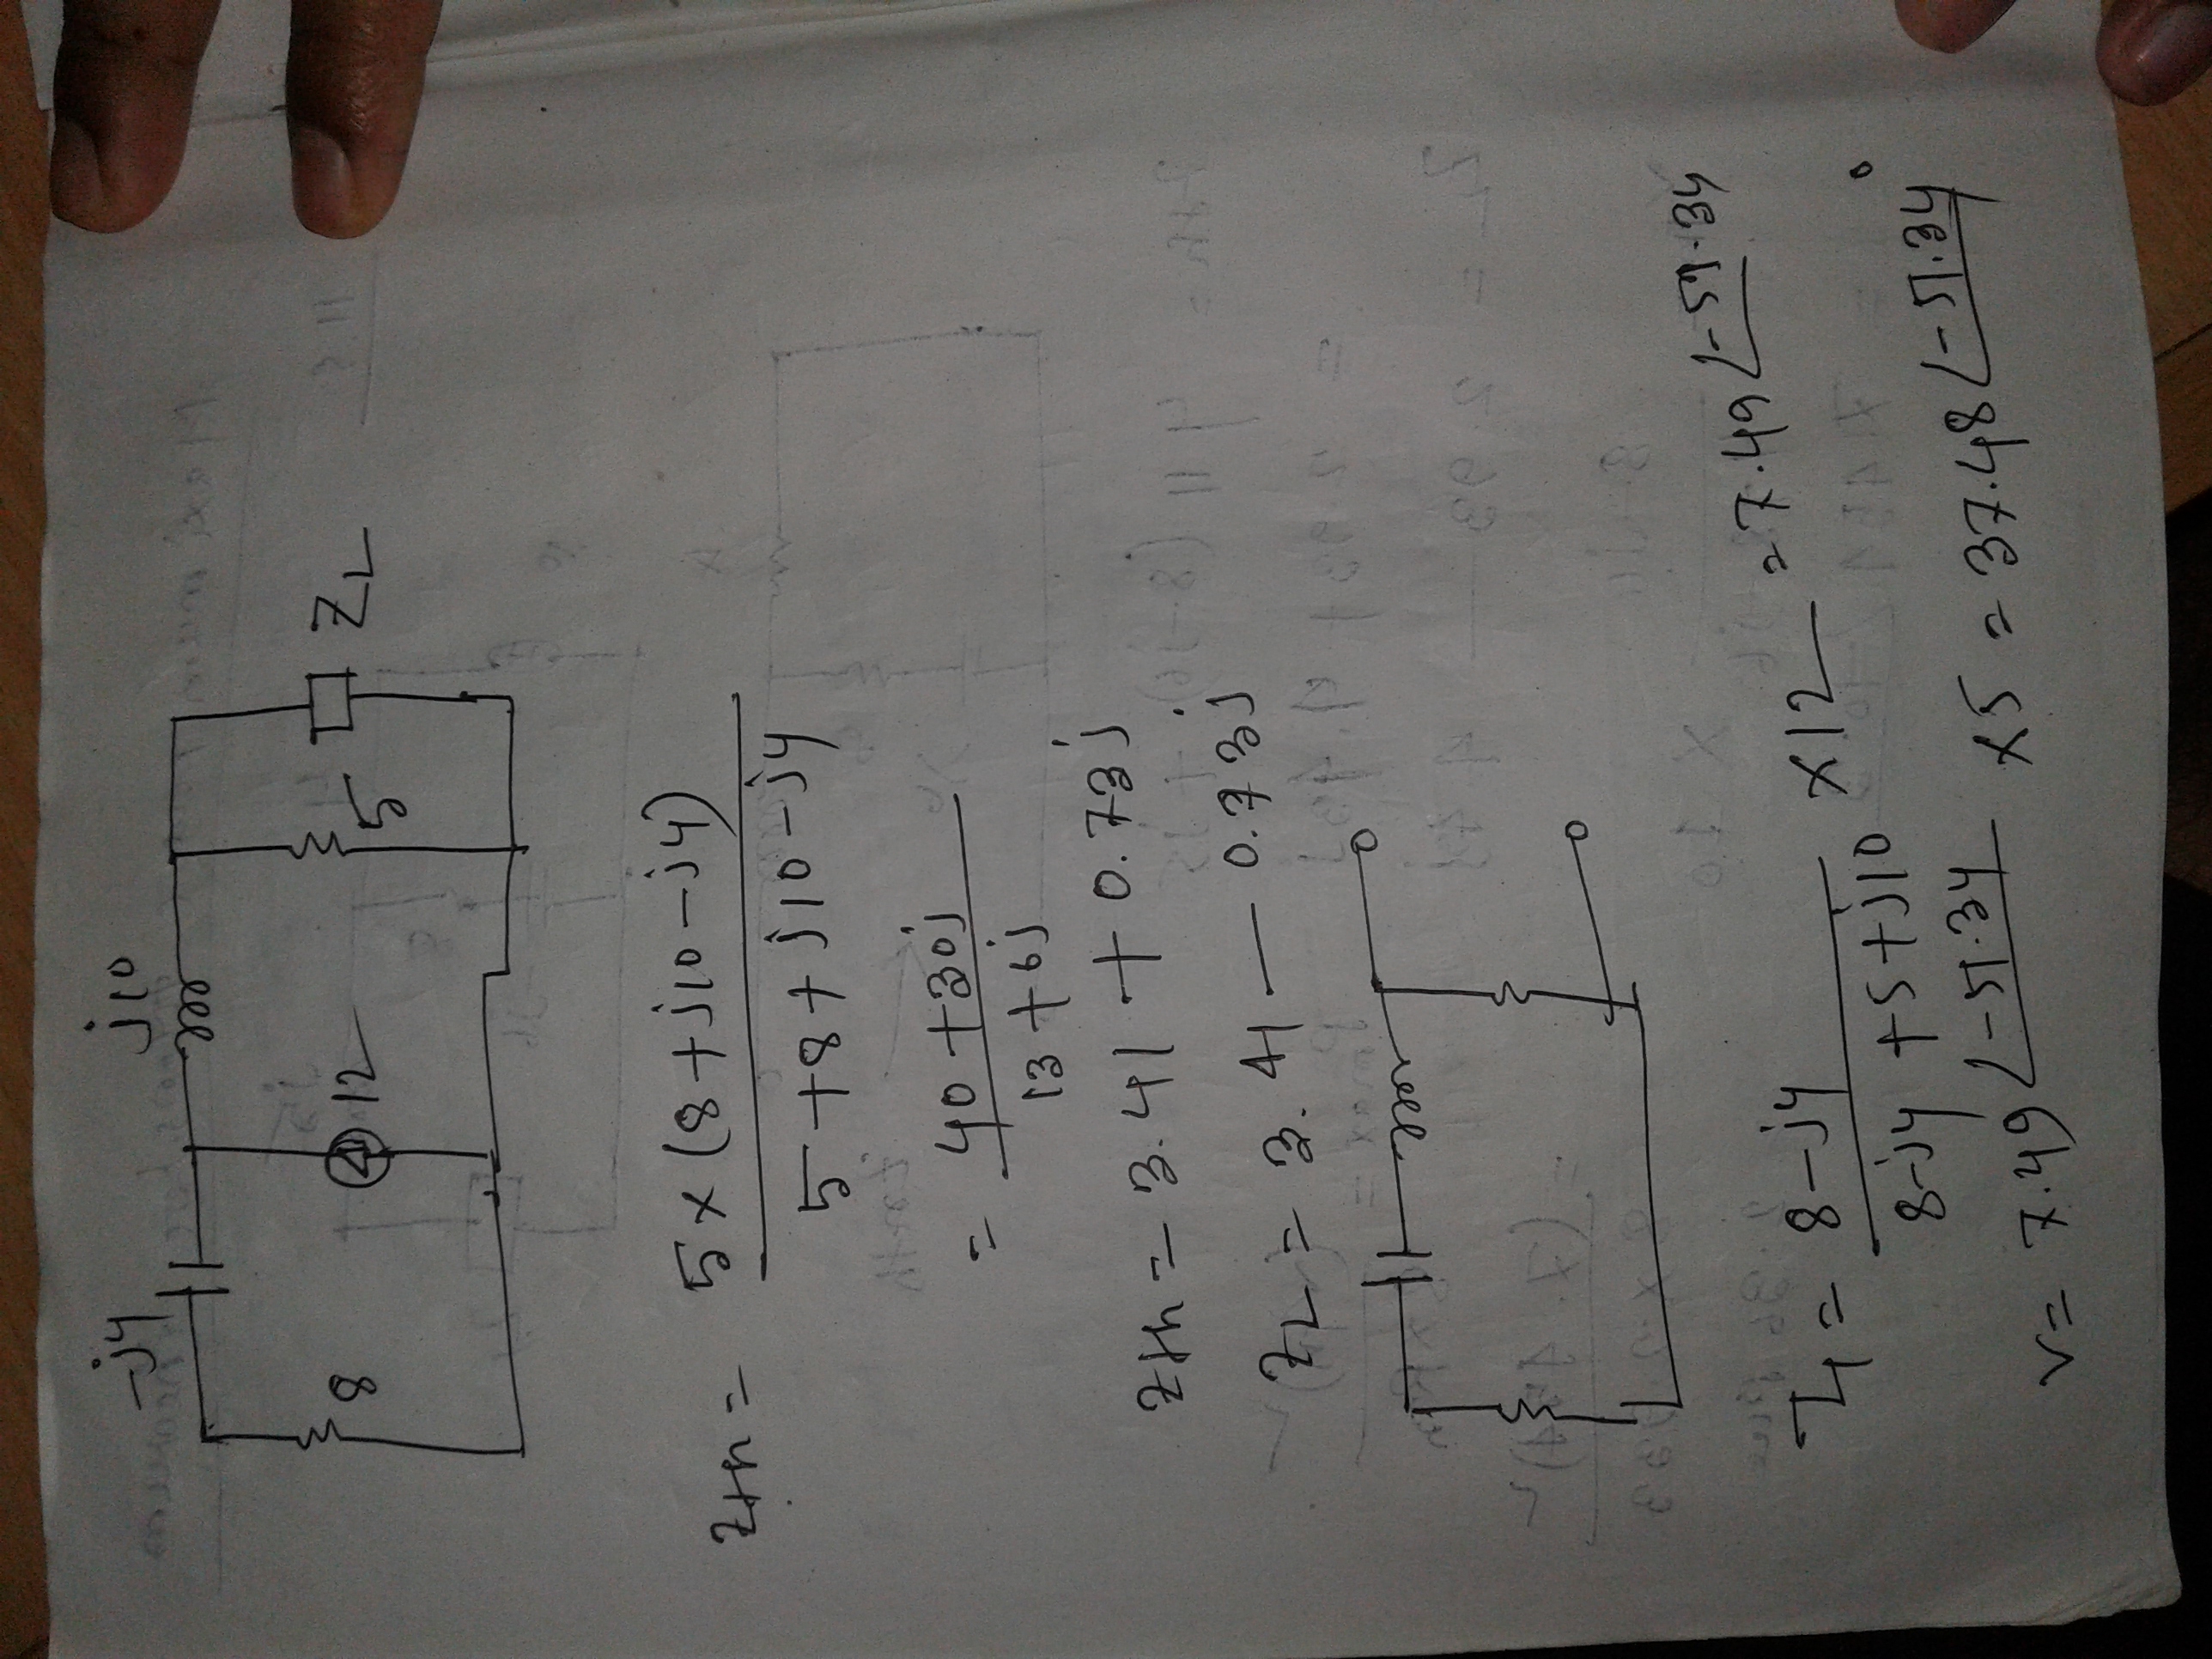 -j4 j10
8 12 5 ZL
Zth = 5 × (8 + j10 - j4)
5 + 8 + j10 - j4
= 40 + 30j
13 + 6j
Zth = 3.41 + 0.73j
ZL = 3.41 - 0.73j
I1 = 8-j4 × 12 = 7.49 ∠-51.34
8-j4 + 5 + j10
V = 7.49 ∠-51.34 × 5 = 37.48 ∠-51.34°